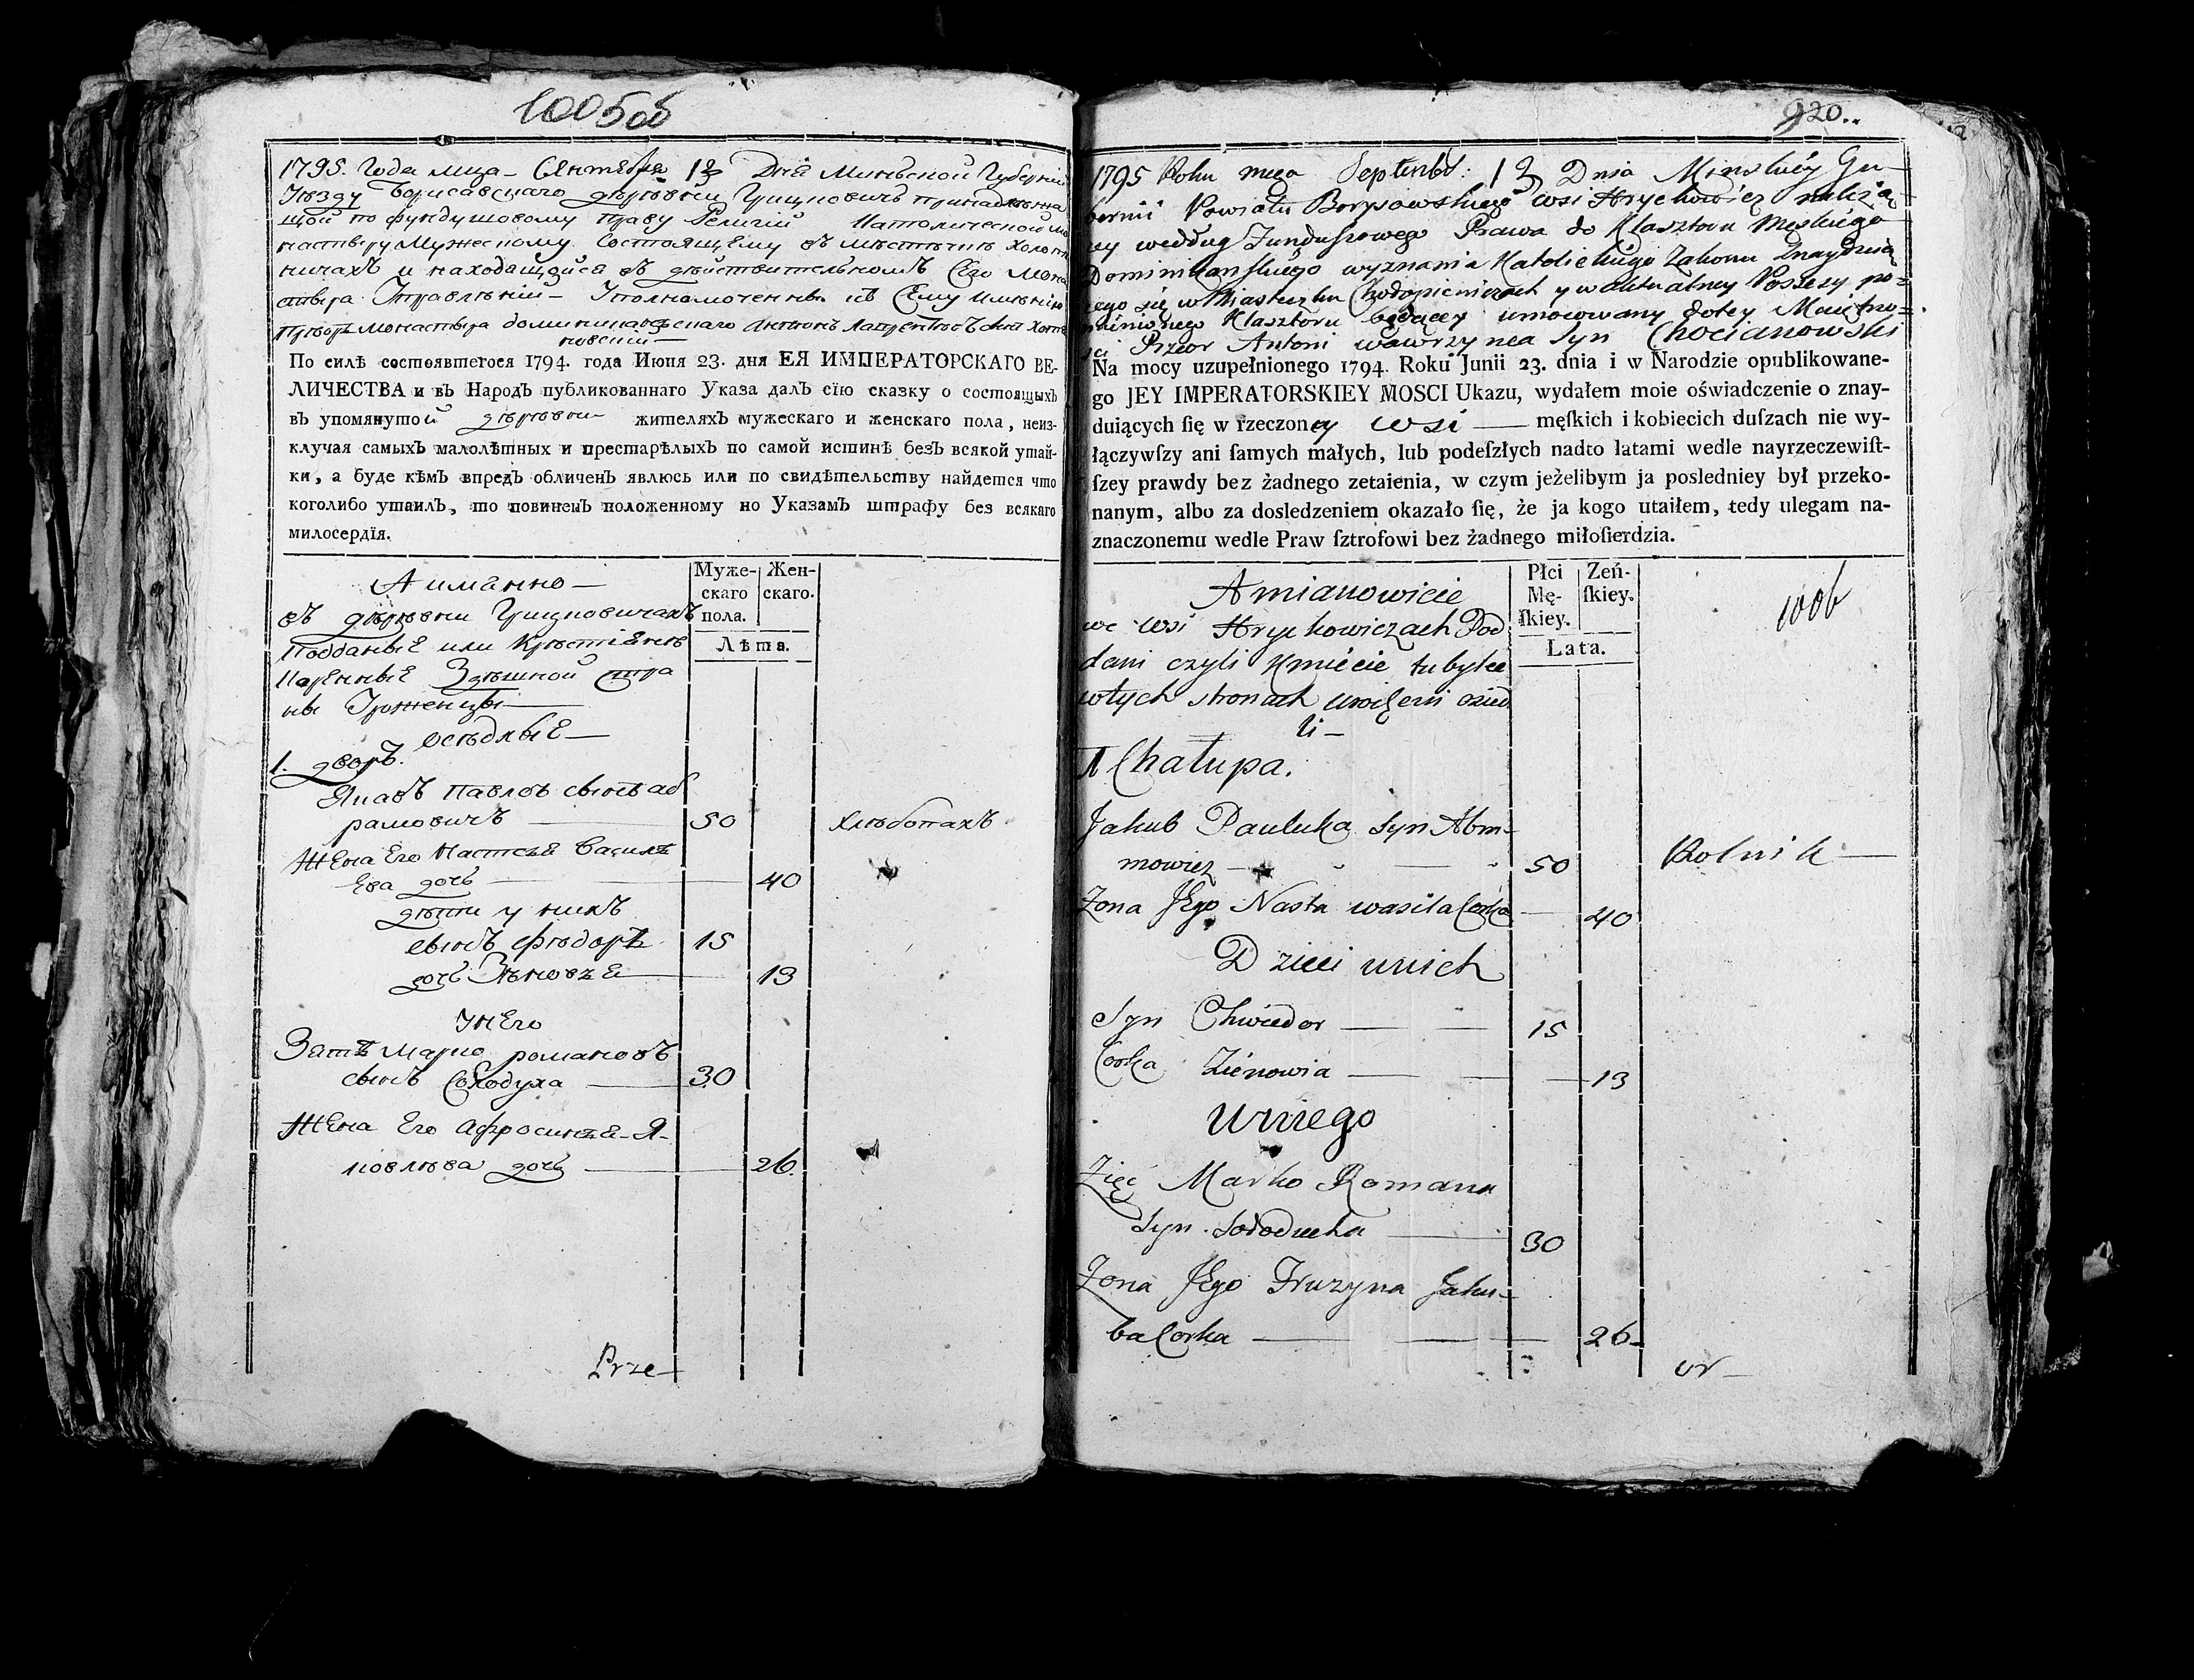 1005 об
1795. Года мца - Сентября 12 Дня Минской Губернии
Уезду Борисавского деревни Грицковичъ принадлежа
щой по фундушовому праву Религии Католической мо
настыру Мужескому Состоящему въ местечке Холопе
ничахъ и находящейся въ действительномъ Сего Мона
стыра Управлении -
Приоръ монастыра доминиканскаго Антонъ
По силѣ состоявшегося 1794. года Июня 23. дня ЕЯ ИМПЕРАТОРСКАГО ВЕ-
ЛИЧЕСТВА и въ Народъ публикованнаго Указа далъ сїю сказку о состоящыхъ
въ упомянутой деревни жителяхъ мужескаго и женскаго пола, неиз-
ключая самыхъ малолѣтныхъ и престарѣлыхъ по самой истинѣ безъ всякой утай-
ки, а буде кѣмъ впредъ обличенъ явлюсь или по свидѣтельству найдется что
коголибо утаилъ, то повиненъ положенному по Указамъ штрафу без всякаго
милосердїя.
А иманно -
Муже-
скаго
пола.
Жен-
скаго.
Лѣта.
въ деревни Грицковичахъ
Подданые или Крестiяне
Здешной стра
ны Уроженцы
оседлые -
1. дворъ.
Якабъ Павловъ сынъ аб
рамовичъ - 50
Хлебопахъ
Жена Его Настся Василе
ева дочь - 40
дети у нихъ
сынъ Фёдоръ 15
дочь Зѣновя - 13
У нЕго
Зять Марко романовъ
сынъ Солодуха - 30
Жена Его Афросиня - Я-
ковлева дочь - 26.
Prze-
920..
1795 Roku mca Septembr: 12 Dnia Minskiey Gu-
bernii Powiatu Borysowskiego wsi Hryckowicz należą-
cey według Funduszowego Prawa do Klasztoru Męskiego
Dominikanskiego wyznania Katolickiego Zakonu Znayduią
cego się w Miasteczku Chołopieniczach y w aktualney Possesy po-
mienionego Klasztoru będącey umocowany Jotey Maiętno-
sci Przeor Antoni Wawrzynca Syn Chocianowski
Na mocy uzupełnionego 1794. Roku Junii 23. dnia i w Narodzie opublikowane-
go JEY IMPERATORSKIEY MOSCI Ukazu, wydałem moie oświadczenie o znay-
duiących ſię w rzeczoney wsi — męſkich i kobiecich duſzach nie wy-
łączywſzy ani ſamych małych, lub podeſzłych nadto latami wedle nayrzeczewiſt-
ſzey prawdy bez żadnego zetaienia, w czym jeżelibym ja posledniey był przeko-
nanym, albo za dosledzeniem okazało ſię, że ja kogo utaiłem, tedy ulegam na-
znaczonemu wedle Praw ſztrofowi bez żadnego miłoſierdzia.
Amianowicie
Płci
Mę-
ſkiey.
Zeń-
ſkiey.
Lata.
1006
we wsi Hryckowiczach Pod
dani czyli Kmiecie tubylce
wtych stronach urodzeni osied
li -
1 Chałupa.
Jakub Pauluka Syn Abra-
mowicz - 50
Rolnik -
Zona JEgo Nasta wasila Corka - 40
Dzieci unich
Syn Chwiedor - 15
Corka Zienowia - 13
Uniego
Zięć Marko Romana
Syn Sołoducha - 30
Zona JEgo Fruzyna Jaku-
ba Corka - 26-
or -